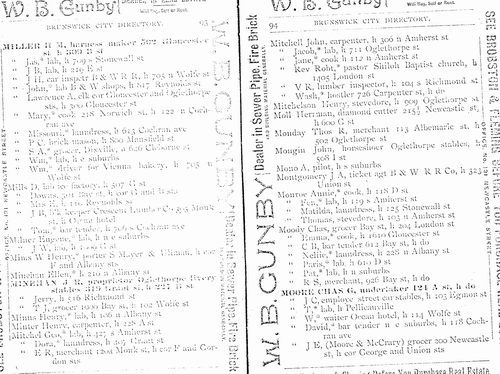 W. B. Gunby
Will Buy, Sell or Rent.
BRUNSWICK CITY DIRECTORY. 93
MILLER H M, harness maker 302 Gloucester
st, h 800 B st
" Jas,* lab, h 709 s Stonewall st
" J B, lab, h 219 E st
" J H, car inspr B & W R R, h 705 n Wolfe st
" John,* lab B & W shops, h 817 Reynolds st
" Lawrence A, clk cor Gloucester and Oglethorpe
sts, h 300 Gloucester st
" Mary,* cook 218 Norwich st, h 122 n Cochran av
" Missouri,* laundress, h 613 Cochran av
" P C, brick mason, h 800 Mansfield st
" S A,* grocer, Dixville, n 626 Cleburne st
" Wm,* lab, h e suburbs
" Wm,* driver for Vienna bakery, h 705 n
Wolfe st
Mills D, lab ice factory, h 507 G st
" Downs, 501 Bay st, h cor 4th and B sts
" Mrs E, h 110 Reynolds st
" J B, bk keeper Crescent Lumber Co 395 Monk
st, h Ocean hotel
" Tom,* bar tender, h 508 s Cochran av
Milner Eugene,* lab, h n e suburbs
" J W, lab, h 1209 G st
Mims W Henry,* porter S Mayer & Ullman, h cor
F and Albany sts
Minehan Ellen,* h 210 n Albany st
MINEHAN J R, proprietor Oglethorpe livery
stables 319 Grant st, h 227 B st
" Jerry, h 516 Richmond st
" T J, grocer 1009 Bay st, h 102 Wolfe st
Minns Henry,* lab, h 106 n Albany st
Minter Henry, carpenter, h 228 A st
Mitchel Geo,* lab, h 515 s Amherst st
" Dora,* laundress, h 405 Grant st
" E R, merchant 1201 Monk st, h cor F and Gordon sts
W. B. GUNBY
Dealer in Sewer Pipe, Fire Brick
W. B. Gunby
Will Buy, Sell or Rent.
94 BRUNSWICK CITY DIRECTORY.
Mitchell John, carpenter, h 306 n Amherst st
" Jacob,* lab, h 711 Oglethorpe st
" Jane,* cook h 112 n Amherst st
" Rev Robt,* pastor Shiloh Baptist church, h
1405 London st
" V R, lumber inspector, h 104 s Richmond st
" Wash,* hostler 726 Carpenter st, h do
Mitchelson Henry, stevedore, h 909 Oglethorpe st
Moll Herrman, diamond cutter 215½ Newcastle st,
h 600 G st
Monday Thos R, merchant 113 Albemarle st, h
502 Oglethorpe st
Mongin John, horseshoer Oglethorpe stables, h
508 I st
Mono A, pilot, h s suburbs
Montgomery J A, ticket agt B & W R R Co, h 323
Union st
Monroe Annie,* cook, h 118 D st
" Fen,* lab, h 119 s Amherst st
" Matilda, laundress, h 125 Stonewall st
" Thomas, stevedore, h 103 n Amherst st
Moody Chas, grocer Bay st, h 204 London st
" Emma,* cook, h 1610 Gloucester st
" C B, bar tender 612 Bay st, h do
" Nellie,* laundress, h 228 n Albany st
" Paris,* lab, h 610 D st
" Pat,* lab, h n suburbs
" R S, merchant, 926 Bay st, h do
MOORE CHAS G, undertaker 124 A st, h do
" J C, employe street car stables, h 103 Egmont st
" T,* lab, h Pellicanville
" W,* waiter Ocean hotel, h 114 Wolfe st
" David,* bar tender n e suburbs, h 118 Cochran av
" J E, (Moore & McCrary) grocer 200 Newcastle
st, h cor George and Union sts
W. B. GUNBY
Dealer in Sewer Pipe, Fire Brick
OFFICE NO. 131 NEWCASTLE STREET